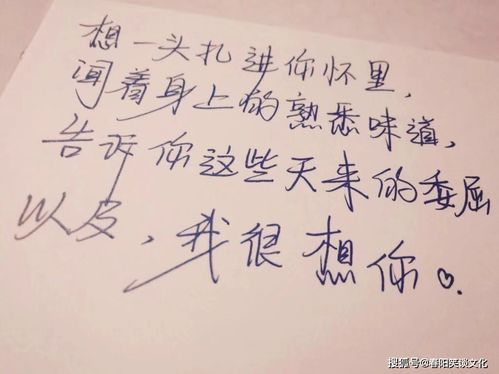 想一头扎进你怀里，
闻着身上的熟悉味道，
告诉你这些天来的委屈
以及，我很想你♡.
搜狐号@春阳笑谈文化